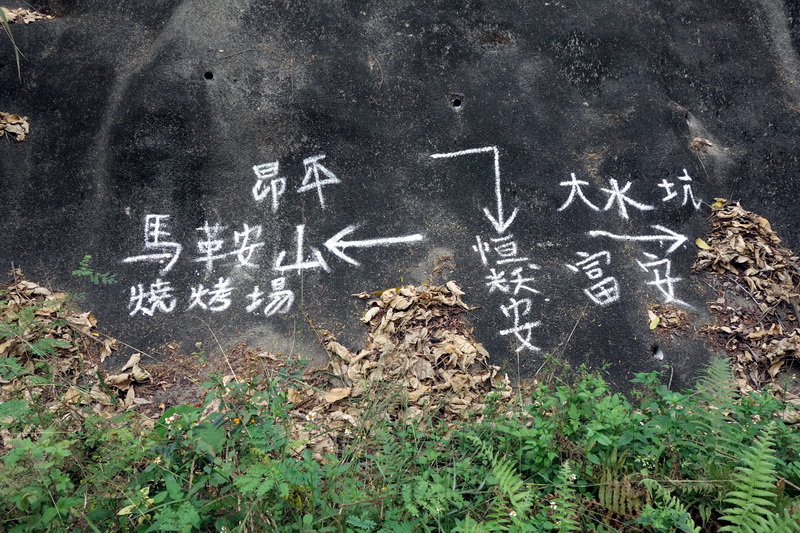 昂平
馬鞍山
燒烤場
恒
㷳
安
大水坑
富安